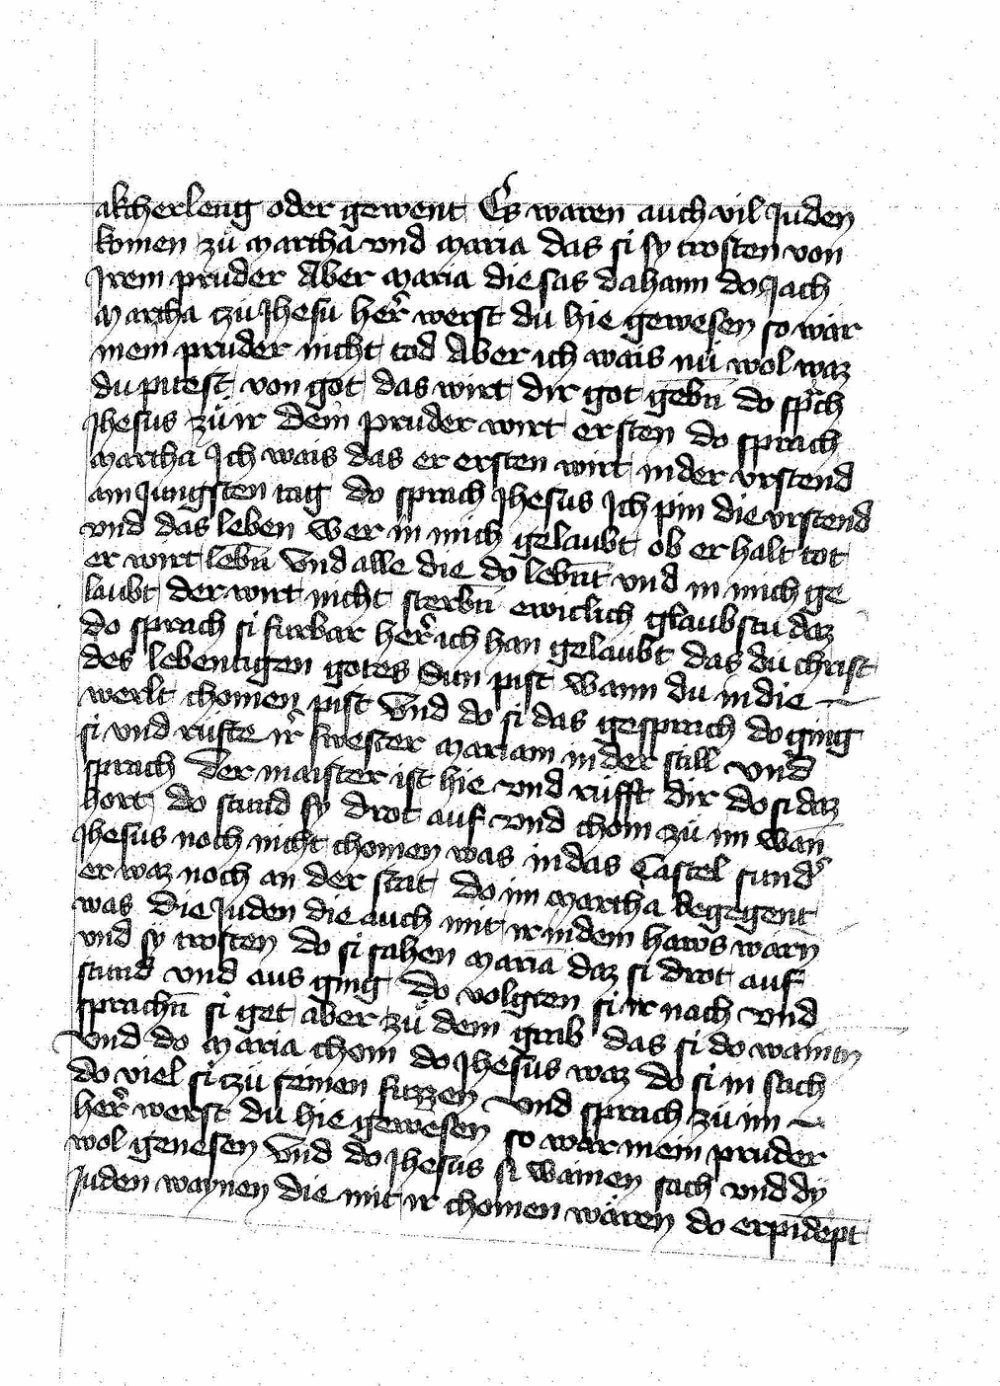 akcherleng oder gewent Es waren auch vil Juden
komen zü Martha vnd Maria das si sy trosten von
Irem pruder Aber Maria die sas dahaim do Jach
Martha zü Jhesu her̃ werst du hie gewesen so wär
mein pruder nicht tod Aber ich wais nü wol waz
du pitest von got das wirt dir got gebn̄ do sprch
Jhesus zü ir dein pruder wirt ersten do sprach
Martha Ich wais das er ersten wirt in der vrstend
am Jungsten tag do sprach Jhesus Ich pin die vrstend
vnd das leben wer in mich gelaubt ob er halt tot
er wirt lebn̄ vnd alle die do lebn̄t vnd in mich ge
laubt der wirt nicht sterbn̄ ewiclich glaubstu daz
do sprach si furbar her̃ ich han gelaubt das du christ
des lebentigen gotes Sun pist wann du in die
werlt chomen pist Vnd do si das gesprach do ging
si vnd rufte ir̃ swester Mariam in der still vnd
sprach der maister ist hie vnd rüfft dir do si daz
hort do stund sy drot auf vnd chom zü im wan̄
Jhesus noch nicht chomen was in das Castel sund̾
er waz noch an der stat do im Martha begegent
was die Juden die auch mit ir in dem haws warn̄
vnd sy trosten do si sahen Maria daz si drot auf
stund vnd aus ging do volgten si ir nach vnd
sprachn̄ si get aber zü dem grab das si do wainen
Vnd do Maria chom do Jhesus waz do si in sach
do viel si zü seinen fuzzen vnd sprach zü im
her̃ werst du hie gewesen so wär mein pruder
wol genesen Vnd do Jhesus si wainen sach vnd dÿ
Juden waynen die mit ir chomen wären do erpidēpt